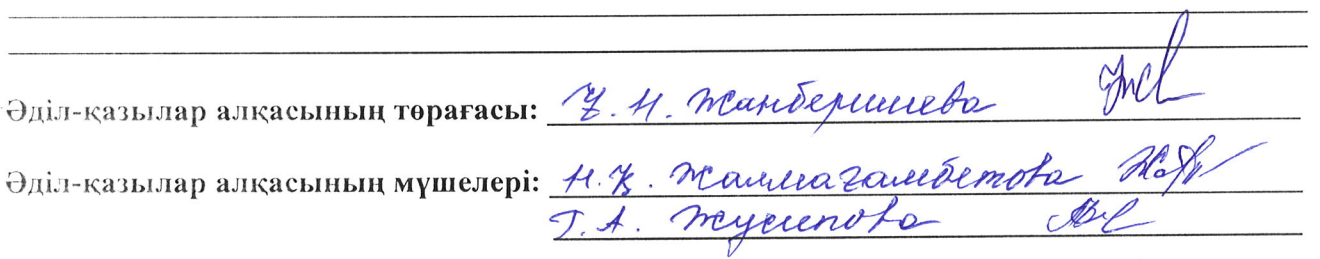 Әділ-қазылар алқасының төрағасы: Ұ. Н. Жанбершиева
Әділ-қазылар алқасының мүшелері: Н. Қ. Жалмағамбетова
Г. А. Жусипова